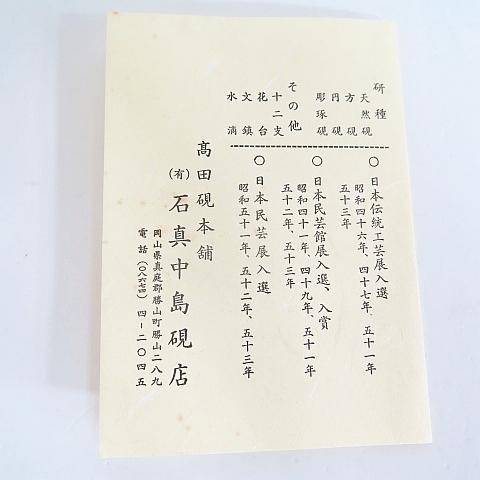 研種
天然硯
方硯
円硯
彫琢硯
その他
十二支
花台
文鎮
水滴
○日本伝統工芸展入選
昭和四十六年、四十七年、五十一年
五十三年
○日本民芸館展入選、入賞
昭和四十一年、四十九年、五十一年
五十二年、五十三年
○日本民芸展入選
昭和五十一年、五十二年、五十三年
髙田硯本舗
(有)石真中島硯店
岡山県真庭郡勝山町勝山二八九
電話(〇八六七四)四-二〇四五